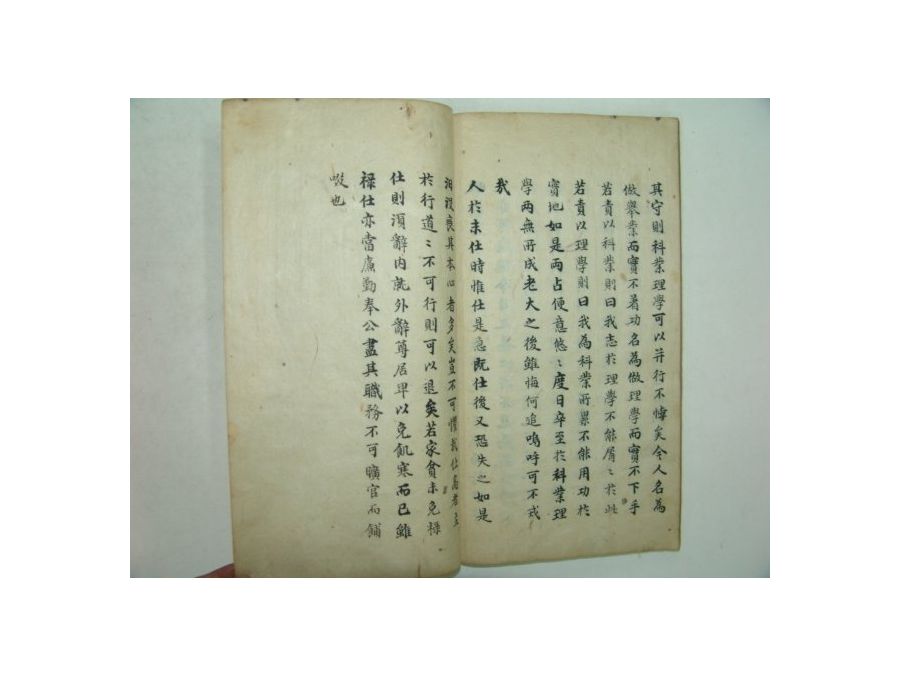 其守則科業理學可以并行不悖矣今人名為
做擧業而實不著功名為做理學而實不下手
若責以科業則曰我志於理學不能屑〻於此
若責以理學則曰我為科業所累不能用功於
實地如是兩占便意悠〻度日卒至於科業理
學兩無所成老大之後雖悔何追嗚呼可不戒
哉
人於未仕時惟仕是急既仕後又恐失之如是
汨沒喪其本心者多矣豈不可懼哉仕高者主
於行道〻不可行則可以退矣若家貧未免祿
仕則須辭內就外辭尊居卑以免飢寒而已雖
祿仕亦當廉勤奉公盡其職務不可曠官而餔
啜也